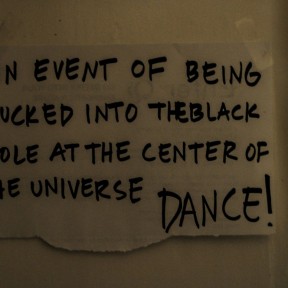 N EVENT OF BEING
UCKED INTO THE BLACK
OLE AT THE CENTER OF
HE UNIVERSE DANCE!